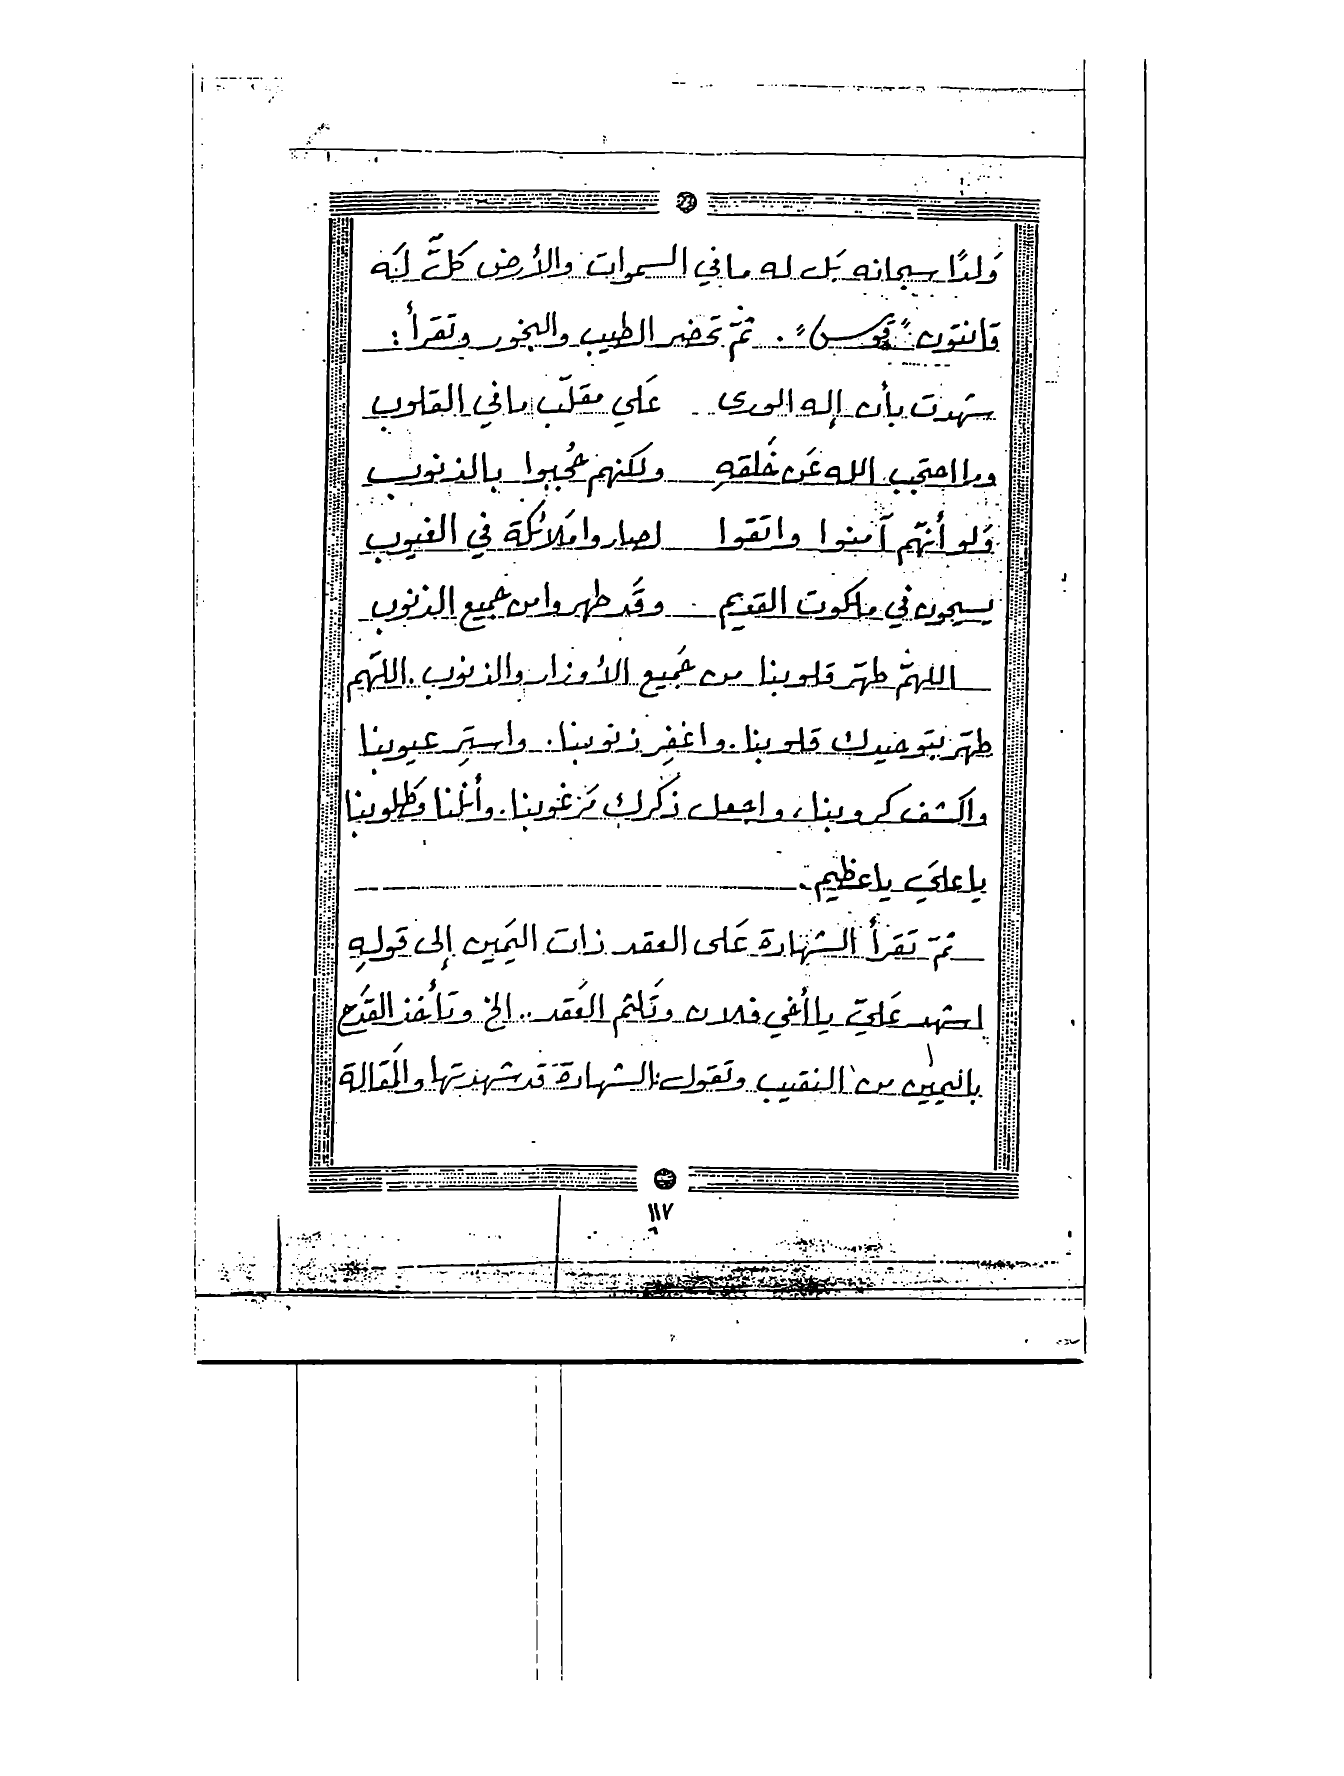 وَلدًا سبحانه بَل له ما في السموات والأرض كلٌّ لَه
قانتون "قوس". ثمّ تحضر الطيب والبخور وتقرأ:
شهدت بأن إله الورى عَلي مقلّب ما في القلوب
وما احتجب الله عَن خَلقهِ ولكنهم حُجبوا بالذنوب
وَلو أنّهم آمنوا واتَقوا لصاروا مَلائكة في الغيوب
يسبحون في ملكوت القديم وقَد طهروا من جميع الذنوب
اللهمّ طهّر قلوبنا من جَميع الأوزار والذنوب. اللهّم
طهّر بتوحيدك قلوبنا. واغفِر ذنوبنا. واستِر عيوبنا
واكشف كروبنا، واجعل ذكرك مَرغوبنا. وأنلنا مَطلوبنا
يا عليَ يا عظيم.
ثمّ تَقرأ الشهادة عَلى العقد ذات اليَمين إلى قولهِ
اشهد عَليّ يا أخي فلان وتَلثم العَقد.. الخ وتَأخذ القدَح
باليمين من النقيب وتقول: الشهادة قد شهدتها والمَقالة
١١٧